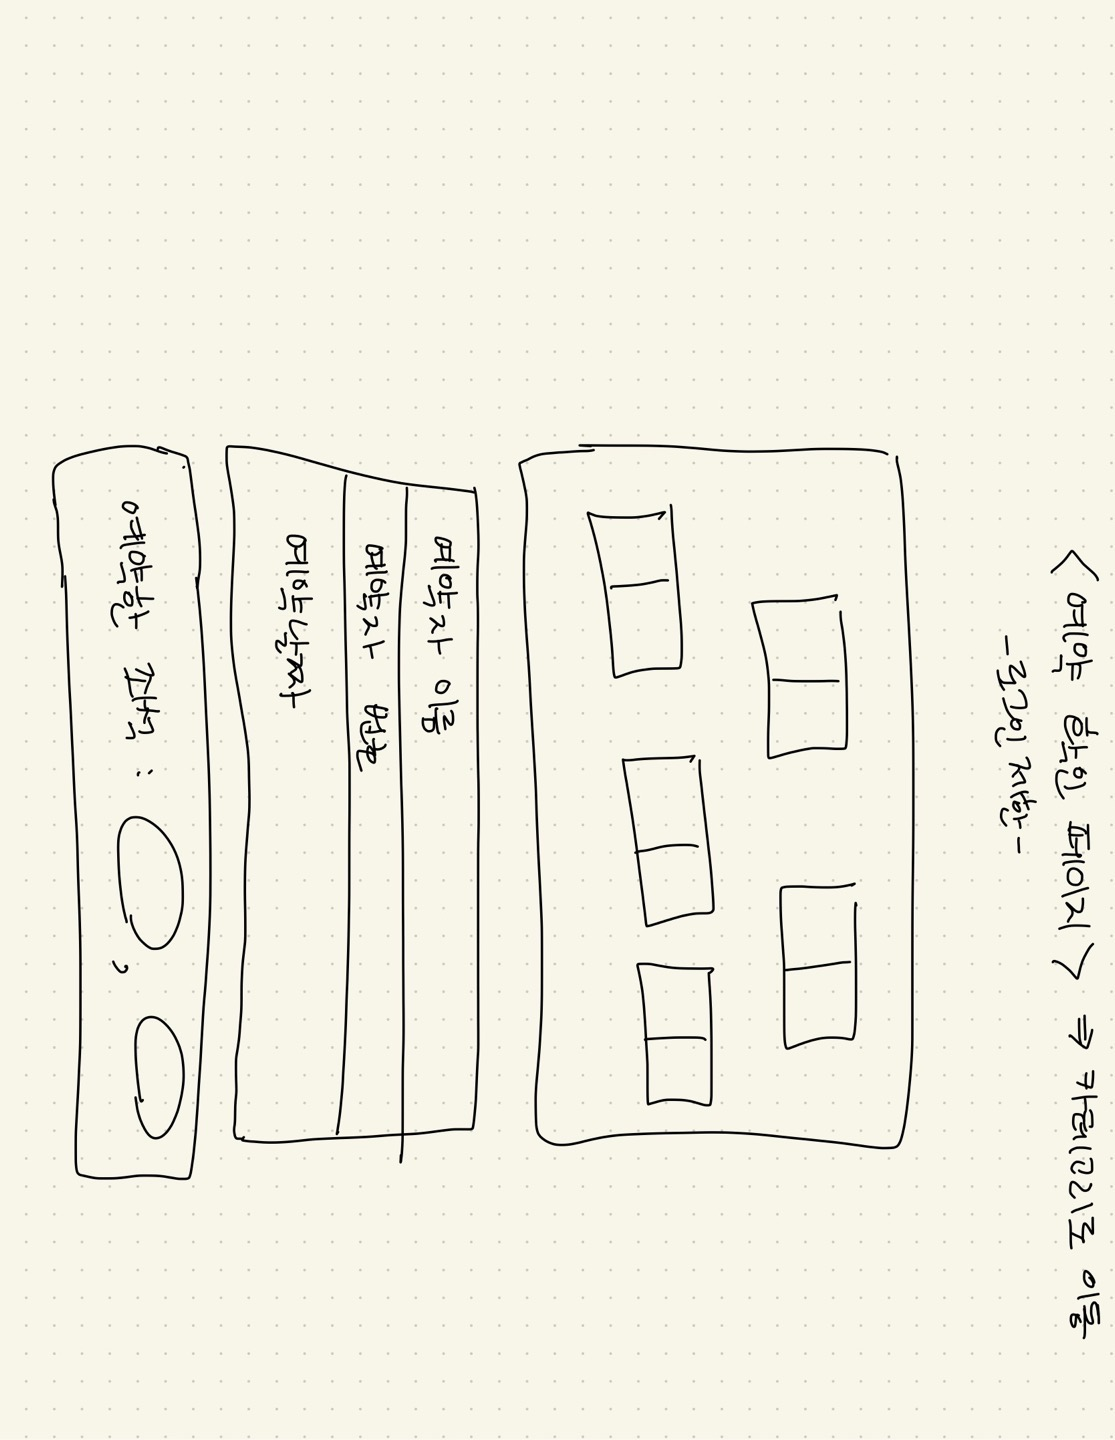 <예약 확인 페이지> ⇒ 카테고리로 이동
-로그인 제한-
예약자 이름
예약자 번호
예약날짜
예약한 좌석 : ,